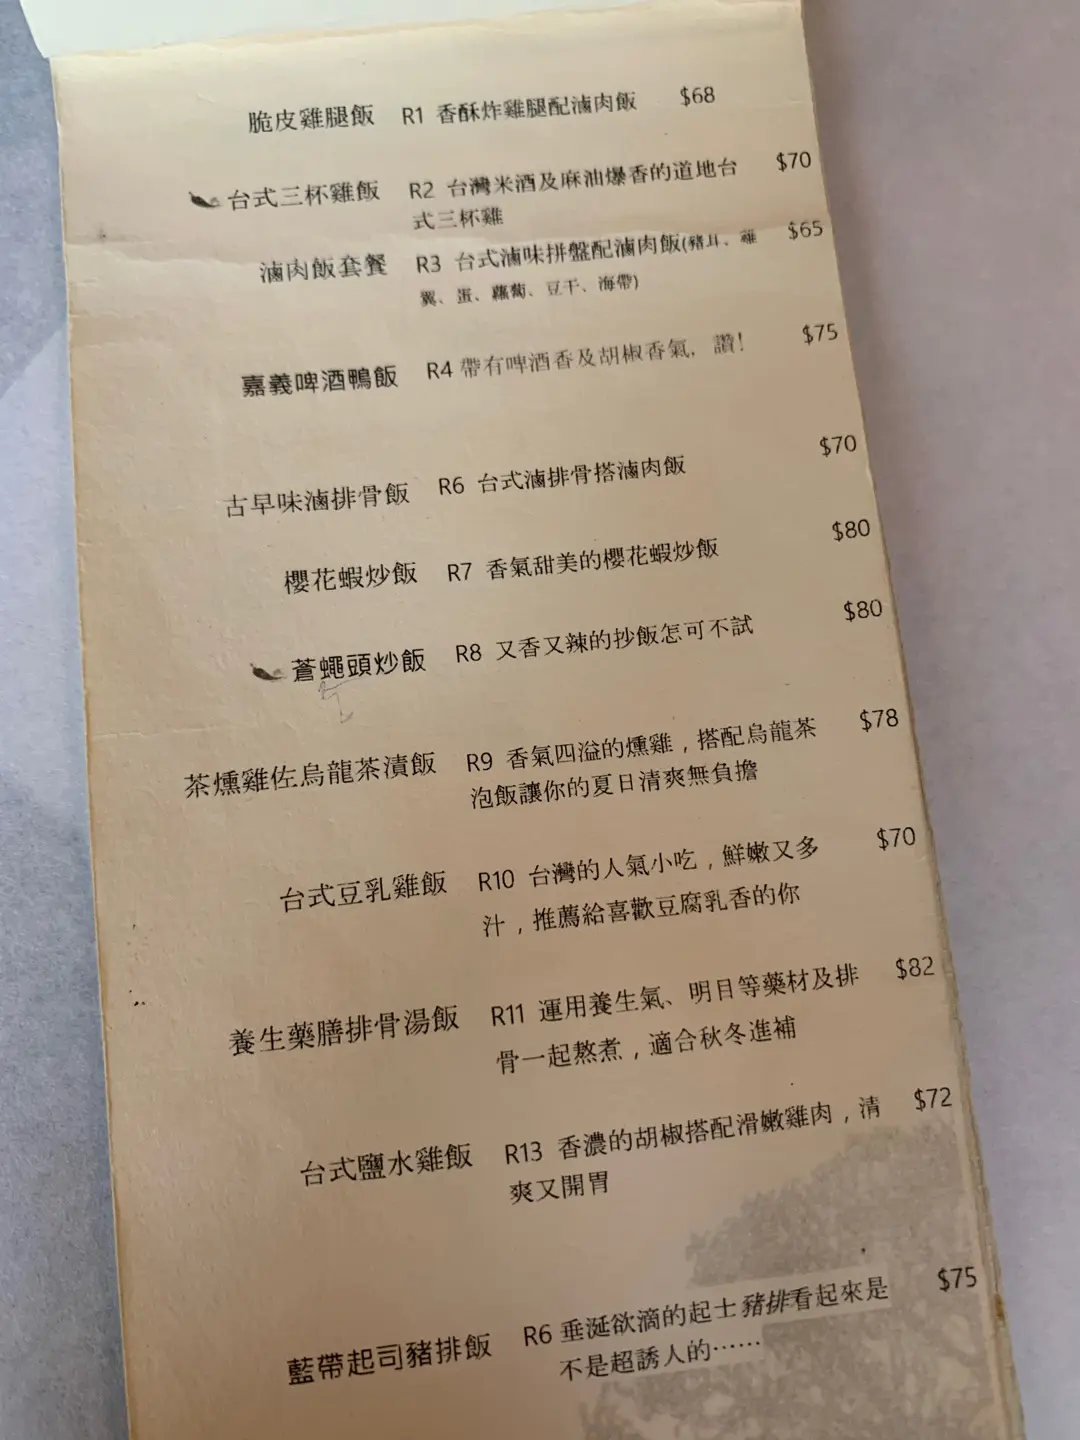 脆皮雞腿飯 R1 香酥炸雞腿配滷肉飯 $68
台式三杯雞飯 R2 台灣米酒及麻油爆香的道地台 $70
式三杯雞
滷肉飯套餐 R3 台式滷味拼盤配滷肉飯(豬耳、雞 $65
翼、蛋、蘿蔔、豆干、海帶)
嘉義啤酒鴨飯 R4 帶有啤酒香及胡椒香氣, 讚! $75
古早味滷排骨飯 R6 台式滷排骨搭滷肉飯 $70
櫻花蝦炒飯 R7 香氣甜美的櫻花蝦炒飯 $80
蒼蠅頭炒飯 R8 又香又辣的抄飯怎可不試 $80
茶燻雞佐烏龍茶漬飯 R9 香氣四溢的燻雞,搭配烏龍茶 $78
泡飯讓你的夏日清爽無負擔
台式豆乳雞飯 R10 台灣的人氣小吃,鮮嫩又多 $70
汁,推薦給喜歡豆腐乳香的你
養生藥膳排骨湯飯 R11 運用養生氣、明目等藥材及排 $82
骨一起熬煮,適合秋冬進補
台式鹽水雞飯 R13 香濃的胡椒搭配滑嫩雞肉,清 $72
爽又開胃
藍帶起司豬排飯 R6 垂涎欲滴的起士豬排看起來是 $75
不是超誘人的……